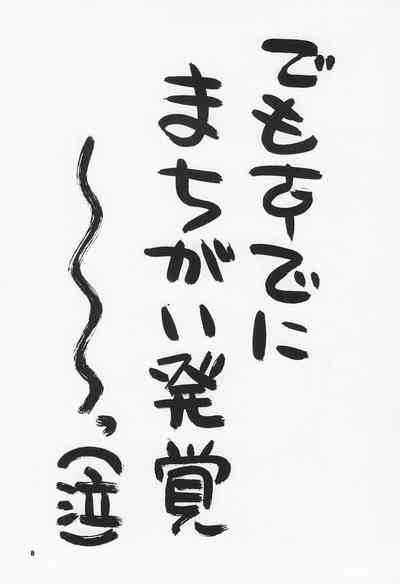 でもすでに
まちがい発覚
〜〜〜、(泣)
8